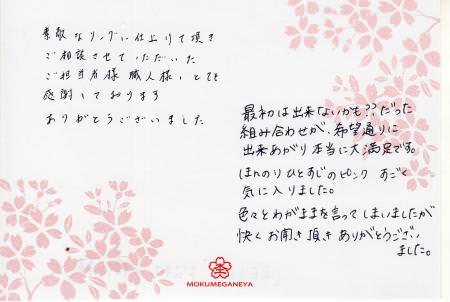 素敵なリングに仕上げて頂き
ご相談させていただいた
ご担当者様、職人様、とても
感謝しております
ありがとうございました
最初は出来ないかも??だった
組み合わせが、希望通りに
出来あがり本当に大満足です。
ほんのりひとすじのピンク すごく
気に入りました。
色々とわがままを言ってしまいましたが
快くお聞き頂きありがとうござい
ました。
MOKUMEGANEYA